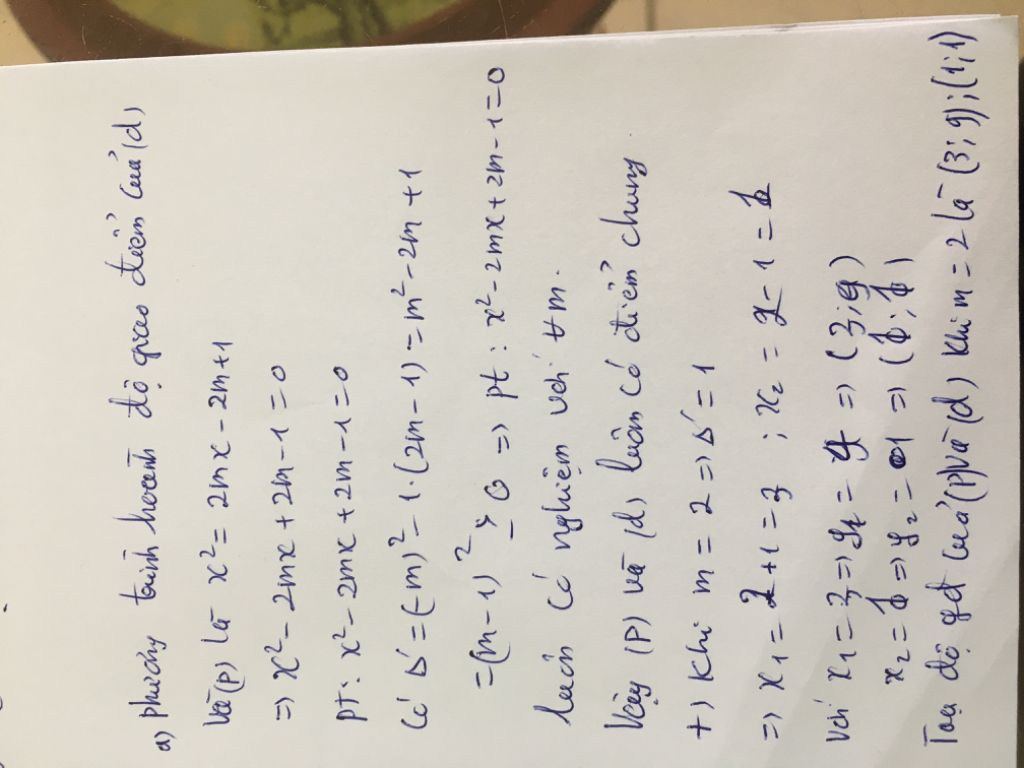 a) phương trình hoành độ giao điểm của (d)
và (P) là x² = 2mx - 2m+1
=> x² - 2mx + 2m - 1 = 0
pt: x² - 2mx + 2m - 1 = 0
Có Δ' = (-m)² - 1.(2m - 1) = m² - 2m + 1
= (m - 1)² ≥ 0 => pt: x² - 2mx + 2m - 1 = 0
luôn có nghiệm với ∀m.
Vậy (P) và (d) luôn có điểm chung
+) Khi m = 2 => Δ' = 1
=> x₁ = 2+1 = 3 ; x₂ = 2 - 1 = 1
Với x₁ = 3 => y₁ = 9 => (3; 9)
x₂ = 1 => y₂ = 1 => (1; 1)
Toạ độ gđ của (P) và (d) khi m = 2 là (3; 9); (1; 1)